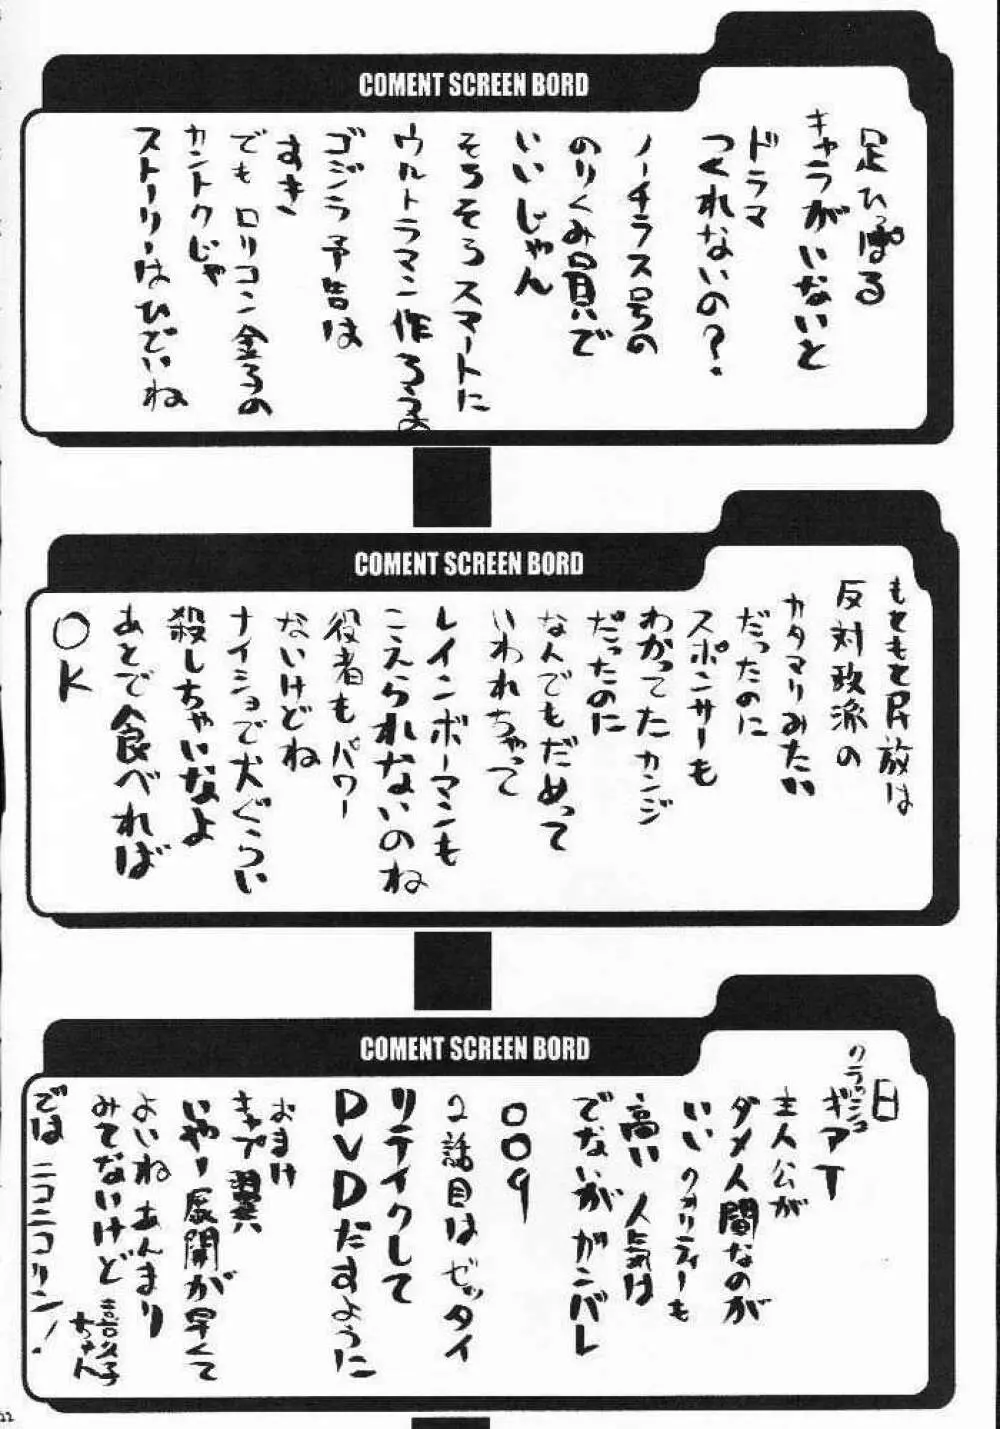 COMENT SCREEN BORD
足ひっぱる
キャラがいないと
ドラマ
つくれないの?
ノーチラス号の
のりくみ員で
いいじゃん
そろそろスマートに
ウルトラマン作ろうよ
ゴジラ予告は
すき
でもロリコン金子の
カントクじゃ
ストーリーはひどいね
COMENT SCREEN BORD
もともと民放は
反対政派の
カタマリみたい
だったのに
スポンサーも
わかってたカンジ
だったのに
なんでもだめって
いわれちゃって
レインボーマンも
こえられないのね
役者もパワー
ないけどね
ナイショで犬ぐらい
殺しちゃいなよ
あとで食べれば
OK
COMENT SCREEN BORD
日
クラッシュ
ギアT
主人公が
ダメ人間なのが
いいクオリティーも
高い人気は
でないがガンバレ
009
2話目はゼッタイ
リテイクして
DVDだすように
おまけ
キャプ翼
いやー展開が早くて
よいねあんまり
みてないけど
ちゃん
では ニコニコリン!
22